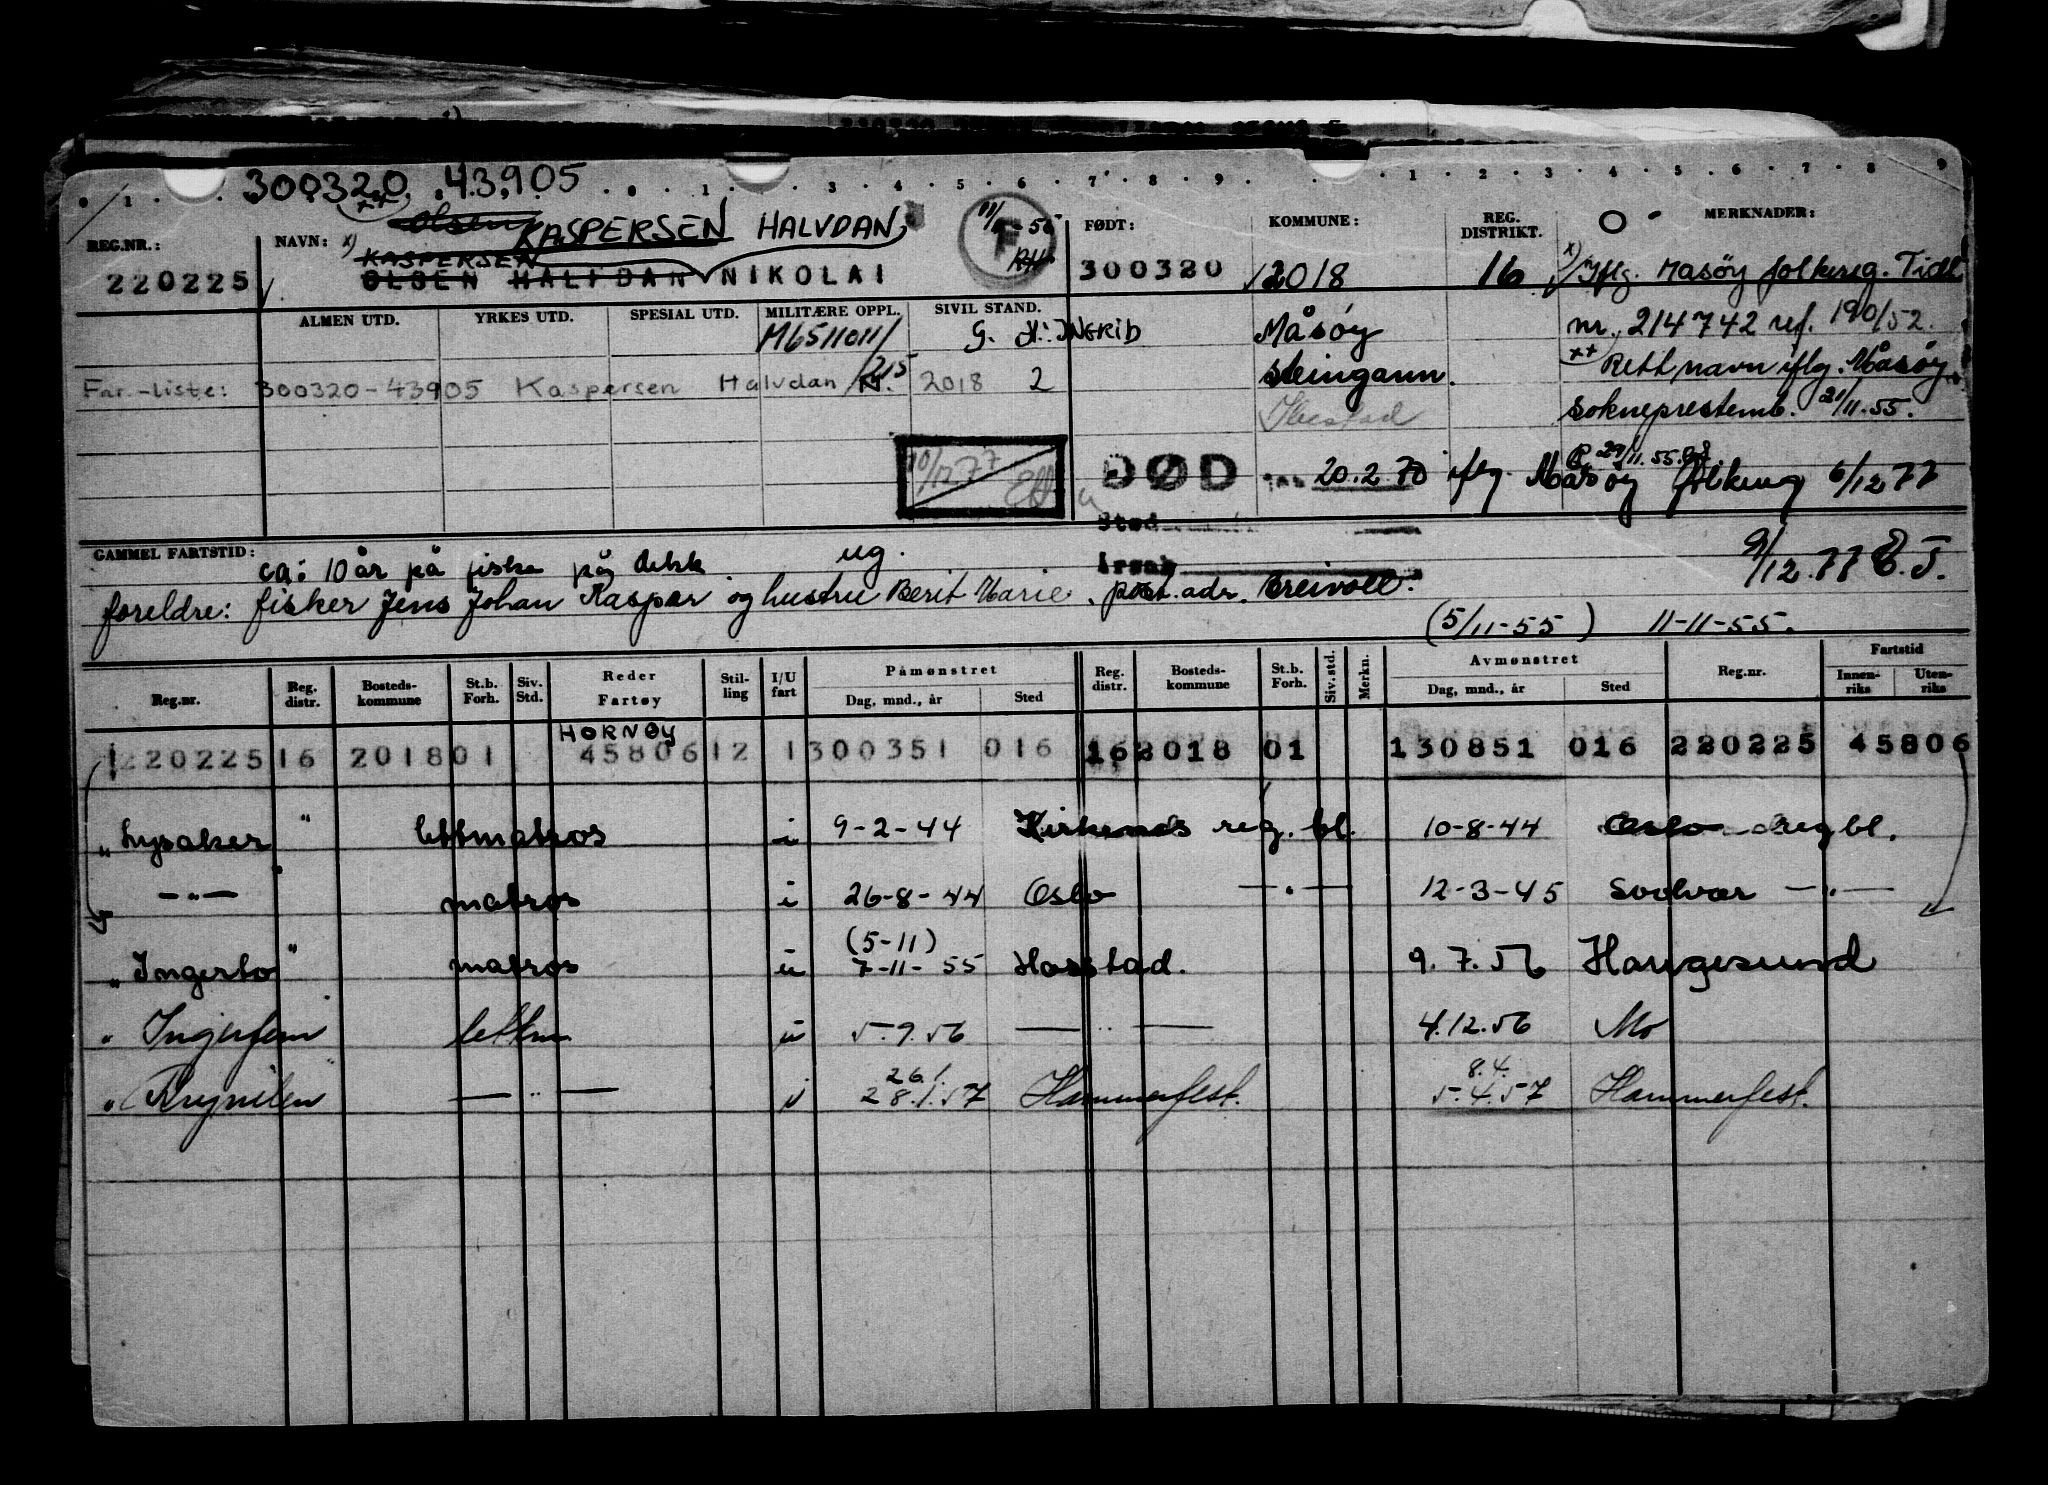 300320 43905
xx)
Olsen KASPERSEN HALVDAN,
REG.NR.: NAVN: x) KASPERSEN FØDT: KOMMUNE: REG. DISTRIKT. MERKNADER:
220225 OLSEN HALFDAN NIKOLAI F 300320 2018 16 x) Iflg. Måsøy folkereg. Tidl.
ALMEN UTD. YRKES UTD. SPESIAL UTD. MILITÆRE OPPL. SIVIL STAND.
M6511011/215 G. H: INGRID Måsøy nr. 214742 ref. 190/52.
Far.-liste: 300320-43905 Kaspersen Halvdan N. 2018 2 Steingamn. xx) Rett navn iflg. Måsøy
Ibestad sokneprestemb. 21/11.55.
29/11.55.
10/12 77 DØD 20.2.70 iflg Måsøy folkereg 6/12 77
Sted
Årsak
GAMMEL FARTSTID: ca: 10 år på fiske på dekk ug. 9/12.77 E.J.
foreldre: fisker Jens Johan Kaspar og hustru Berit Marie. post.adr. Breivoll.
(5/11-55) 11-11-55.
Reg.nr. Reg. distr. Bosteds-kommune St.b. Forh. Siv. Std. Reder Fartøy Stil-ling I/U fart Påmønstret Dag, mnd., år Sted Reg. distr. Bosteds-kommune St.b. Forh. Siv.std. Merkn. Avmønstret Dag, mnd., år Sted Reg.nr. Fartstid Innen-riks Uten-riks
HORNØY
220225 16 2018 01 45806 12 1 300351 016 16 2018 01 130851 016 220225 45806
" Lysaker " lettmatros i 9-2-44 Kirkenes reg. bl. 10-8-44 Oslo reg bl.
—"— matros i 26-8-44 Oslo —"— 12-3-45 Svolvær —"—
(5-11)
" Ingerto " matros u 7-11-55 Harstad. 9.7.56 Haugesund
" Ingerfem lettm. u 5.9.56 —"— 4.12.56 Mo
26.1. 8.4.
" —"— i 28.1.57 Hammerfest. 5.4.57 Hammerfest.